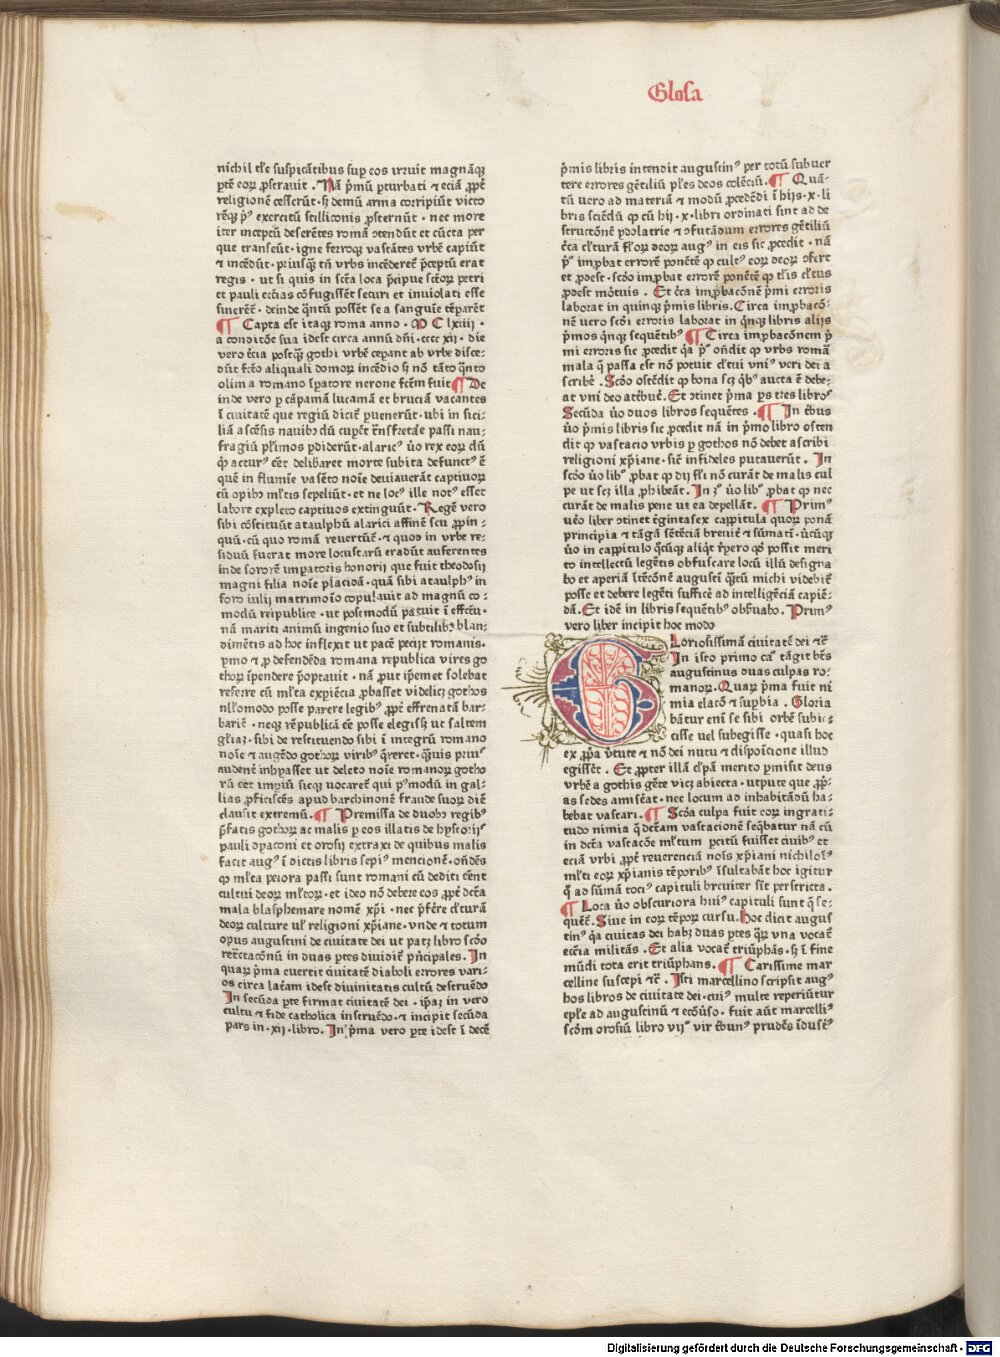 Glosa
nichil tale suspicātibus sup eos irruit magnāqȝ
ptē eorꝝ ꝓstrauit . Nā pͥmū pturbati ⁊ eciā ꝓpt̄
religionē cesserūt · sȝ demū arma corripiūt victo
rēqȝ pͥꝰ exercitū stilliconis ꝓsternūt · nec more
iter inceptū deserētes romā ↄtendūt et cūcta per
que transeūt · igne ferroqȝ vastātes vrbē capiūt
⁊ incēdūt · priusqꝫ tn̄ vrbs incēderet᷑ p̄ceptū erat
regis · ut si quis in sct̄a loca p̄cipue sctōrꝝ petri
et pauli ecc̄ias cōfugissēt securi et inuiolati esse
sinerēt᷑ · deinde qͣntū possēt se a sanguīe tēparēt
¶ Capta est itaqȝ roma anno · M C lxiiii ·
a conditōe sua idest circa annū dn̄i · cccc xii · die
vero t̄cia postqꝫ gothi vrbē cepant ab vrbe disce-
dūt fctō aliquali domorꝝ incēdio sȝ nō tāto qͣnto
olim a romano īpatore nerone fctēm fuit ¶ De
inde vero p cāpamā lucamā et bruciā vacantes
ī ciuitatē que regiū dicit᷑ puenerūt · ubi in sici-
liā ascēsis nauibꝫ dū cupēt t̄nsfretāe passi nau-
fragiū plimos pdiderūt · alaricꝰ ůo rex eorꝝ dū
qͥ acturꝰ eēt delibaret morte subita defunctꝰ ē
quē in flumīe vasēto noīe deuiauerāt captiuorꝝ
cū opibꝫ ml̄tis sepeliūt · et ne locꝰ ille notꝰ esset
labore expleto captiuos extinguūt . Regē vero
sibi cōstituūt ataulphū alarici affinē seu ꝓpin-
quū · cū quo romā reuertūt᷑ · ⁊ quod in vrbe re-
siduū fuerat more locustarū eradūt auferentes
inde sororē impatoris honorij que fuit theodosij
magni filia noīe placidā · quā sibi ataulphꝰ in
foro iulij matrimoīo copulauit ad magnū co-
modū reipublice · ut postmodū patuit ī effctū ·
nā mariti animū ingenio suo et subtilibꝫ blan-
dimētis ad hoc inflexit ut pacē pecijt romanis .
ymo ⁊ ꝓ defendēda romana republica vires go
thorꝝ īpendere p̄optauit · nā ꝓut ip̄emet solebat
referre cū ml̄ta expiēcia ꝓbasset videlicȝ gothos
nl̄lomodo posse parere legibꝰ ꝓpt̄ effrenatā bar-
bariē · neqȝ rēpublicā eē posse elegissȝ ut saltem
gl̄iaȝ · sibi de restituendo sibi ī integrū romano
noīe ⁊ augēdo gothorꝝ viribꝰ q̄reret · qꝫuis priuꝰ
audent᷑ inhyasset ut deleto noīe romanorꝝ gotho
rū eet impiū sicqȝ uocaret᷑ qui pꝰmodū in gal-
lias ꝓficiscēs apud barchinonē fraude suorꝝ diē
clausit extremū . ¶ Premissa de duobꝫ regibꝰ
p̄fatis gothorꝝ ac malis p eos illatis de hystorijs
pauli dyaconi et orosij extraxi de quibus malis
facit augꝰ ī dictis libris sepiꝰ mencionē · on̄dēs
qͥ ml̄ta peiora passi sunt romani cū dediti eēnt
cultui deorꝝ ml̄torꝝ · et ideo nō debere eos ꝓpt̄ dct̄a
mala blasphemare nomē xp̄i · nec pͥferre cl̄turā
deorꝝ culture ul̓ religioni xp̄iane · vnde ⁊ totum
opus augustini de ciuitate dei ut patȝ libro scd̓o
retct̄aconū in duas ptes diuidit᷑ pn̓cipales . In
quarꝝ pͥma euertit ciuitatē diaboli errores vari-
os circa latiam idest diuinitatis cultū destruēdo
In secūda pte firmat ciuitatē dei · ip̄aȝ in vero
cultu ⁊ fide catholica instruēdo · ⁊ incipit secūda
pars in · xij · libro . In pͥma vero pte idest ī decē
pͥmis libris intendit augustinꝰ per totū subuer
tere errores gētiliū pl̄es deos colēciū . ¶ Quā-
tū uero ad materiā ⁊ modū ꝓcedēdi ī hijs · x · li
bris sciēdū qͥ cū hij · x · libri ordinati sint ad de
structōnē ydolatrie ⁊ ↄfutādum errores gētiliū
c̄ca cl̄turā fl̄orꝝ deorꝝ augꝰ in eis sic ꝓcedit · nā
pͥꝰ imꝓbat errorē ponētē qͥ cultꝰ eorꝝ deorꝝ ↄfert
et ꝓdest · scd̓o imꝓbat errorē ponētē qͥ tl̄is cl̄tus
ꝓdest mōtuis . Et c̄ca imꝓbacōnē pͥmi erroris
laborat in quinqȝ pͥmis libris . Circa imꝓbacō-
nē uero scd̓i erroris laborat in qͥnqȝ libris alijs
pͥmos qͥnqȝ sequētibꝰ ¶ Circa imꝓbacōnem pͥ
mi erroris sic ꝓcedit qͥa pͥꝰ on̄dit qͥ vrbs romā
mala qͣ passa est nō potuit cl̄tui vniꝰ veri dei a
scribē . Scd̓o ostēdit qͥ bona scȝ qͥbꝰ aucta ē debe-
at vni deo att̓buē . Et ↄtinet pͥma ps tres librosꝰ
Secūda ůo duos libros sequētes . ¶ In t̓bus
ůo pͥmis libris sic ꝓcedit nā in pͥmo libro osten
dit qͥ vastacio vrbis p gothos nō debet ascribi
religioni xp̄iane · sic̄ infideles putauerūt . In
scd̓o ůo libꝰ ꝓbat qͥ dij fl̄i nō curāt de malis cul
pe ut scȝ illa ꝓhibeāt . In 3º ůo libꝰ ꝓbat qͥ nec
curāt de malis pene ut ea depellāt . ¶ Primꝰ
ue̓o liber ↄtinet t̓gintasex capͥtula quorꝝ ponā
principia ⁊ tāgā sētēciā breuit̓ ⁊ sūmatī · ůcūqȝ
ůo in capͥtulo qͥcūqȝ aliqͥt rep̓ero qͥð possit meri
to intellectū legētis obfuscare locū illū designa
bo et aperiā ītēcōnē augustī qͣꝫtū michi videbit᷑
posse et debere legēti sufficē ad intelligēciā capiē-
dā . Et idē in libris sequētibꝰ obẜuabo . Primꝰ
vero liber incipit hoc modo
Gloriosissimā ciuitatē dei ⁊cē
In isto primo caº tāgit bt̄s
augustinus duas culpas ro-
manorꝝ . Quarꝝ pͥma fuit ni
mia elacō ⁊ supbia . Gloria
bātur eni se sibi orbē subie-
cisse uel subegisse · quasi hoc
ex ꝓpͥa v̓tute ⁊ nō dei nutu ⁊ dispoīcione illud
egissēt . Et ꝓpter illā cl̄pā merito pmisit deus
vrbē a gothis gēte vicȝ abiecta · utpute que ꝓpͥ-
as sedes amise̓at · nec locum ad inhabitādū ha-
bebat vastari . ¶ Scd̓a culpa fuit eorꝝ ingrati-
tudo nimia qͣ dct̄am vastacionē seqͣbatur nā cū
in dct̄a vastacōe ml̄tum pcitū fuisset ciuibꝰ et
eciā vrbi ꝓpt̄ reuerenciā noīs xp̄iani nichiloīꝰ
ml̄ti eorꝝ xp̄ianis tēporibꝰ īsultabāt hoc igitur
ē ad sūmā tociꝰ capituli breuiter sit̓ perstricta .
¶ Loca ůo obscuriora huiꝰ capituli sunt qͣ se-
quūt᷑ . Siue in eorꝝ tēporꝝ cursu . hoc dicit augus
tinꝰ qͥa ciuitas dei habȝ duas ptes qͣrꝝ vna vocat᷑
eccl̄ia militās . Et alia vocat᷑ triūphās · sȝ ī fine
mūdi tota erit triūphans . ¶ Carissime mar
celline suscepi ⁊cē . Isti marcellino scripsit augꝰ
hos libros de ciuitate dei · cuiꝰ multe reperiūtur
epl̄e ad augustinū ⁊ ecōůso . fuit aūt marcelliꝰ
scd̓m orosiū libro vijº vir t̓bunꝰ prudēs īdustꝰ
Digitalisierung gefördert durch die Deutsche Forschungsgemeinschaft - DFG